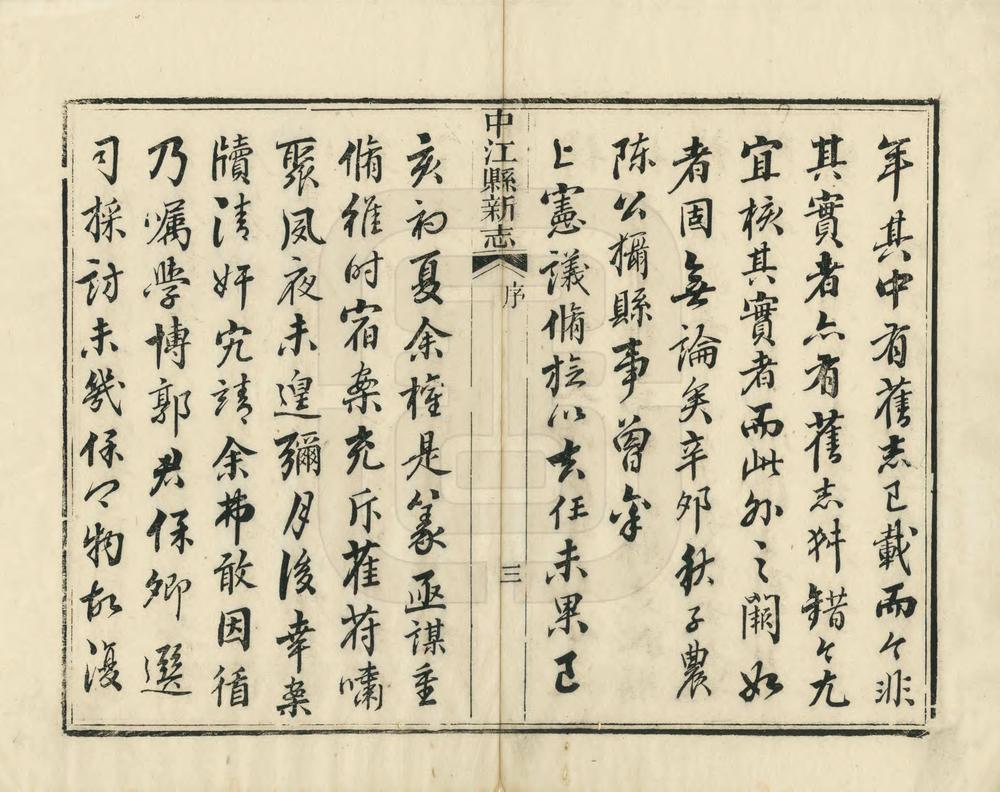 年其中有舊志已載而今非
其實者亦有舊志舛錯今尤
宜核其實者而此外之闕如
者固無論矣辛卯秋子農
陳公攝縣事曾奉
上憲議脩旋以去任未果己
中江縣新志 序 三
亥初夏余權是篆亟謀重
脩維时宿案充斥萑苻嘯
聚夙夜未遑彌月後幸案
牘清奸宄靖余弗敢因循
乃嘱學博郭君保卿選
司採訪未幾保物故復